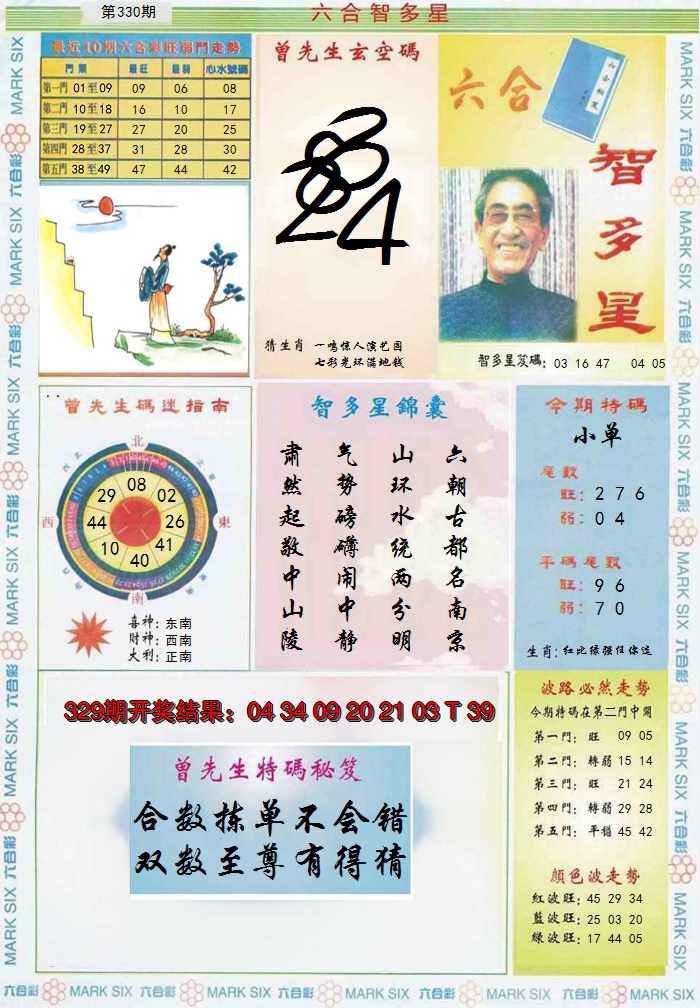 第330期
六合智多星
最近10期六合彩旺弱門走勢
門類 最旺 最弱 心水號碼
第一門 01至09 09 06 08
第二門 10至18 16 10 17
第三門 19至27 27 20 25
第四門 28至37 31 28 30
第五門 38至49 47 44 42
曾先生玄空碼
猜生肖 一鸣惊人演艺圈
七彩光环满地钱
六合
智多星
智多星笈碼: 03 16 47 04 05
曾先生碼迷指南
北
西
東
南
08
02
26
41
40
10
44
29
喜神: 东南
財神: 西南
大利: 正南
智多星錦囊
六朝古都名南京
山环水绕两分明
气势磅礴闹中静
肃然起敬中山陵
今期特碼
小单
尾數
旺: 2 7 6
弱: 0 4
平碼尾數
旺: 9 6
弱: 7 0
生肖: 红比绿强任你选
329期开奖结果: 04 34 09 20 21 03 T 39
曾先生特碼秘笈
合数拣单不会错
双数至尊有得猜
波路必然走勢
今期特碼在第二門中開
第一門: 旺 09 05
第二門: 轉弱 15 14
第三門: 旺 21 24
第四門: 轉弱 29 28
第五門: 平穩 45 42
顏色波走勢
紅波旺: 45 29 34
藍波旺: 25 03 20
绿波旺: 17 44 05
MARK SIX 六合彩 MARK SIX 六合彩 MARK SIX 六合彩 MARK SIX 六合彩 MARK SIX